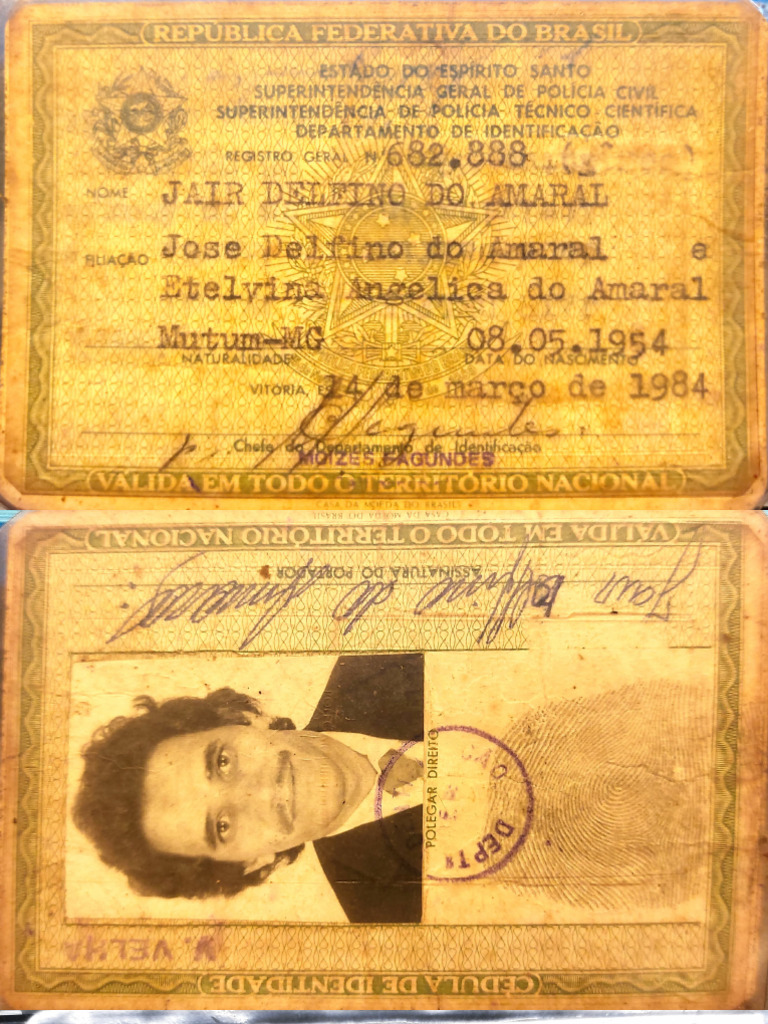 REPÚBLICA FEDERATIVA DO BRASIL
ESTADO DO ESPÍRITO SANTO
SUPERINTENDÊNCIA GERAL DE POLÍCIA CIVIL
SUPERINTENDÊNCIA DE POLÍCIA TÉCNICO CIENTÍFICA
DEPARTAMENTO DE IDENTIFICAÇÃO
REGISTRO GERAL Nº 682.888
NOME JAIR DELFINO DO AMARAL
FILIAÇÃO Jose Delfino do Amaral e
Etelvina Angelica do Amaral
Mutum-MG 08.05.1954
NATURALIDADE DATA DO NASCIMENTO
VITÓRIA, ES 14 de março de 1984
Chefe do Departamento de Identificação
MOIZES FAGUNDES
VÁLIDA EM TODO O TERRITÓRIO NACIONAL
CASA DA MOEDA DO BRASIL
CASA DA MOEDA DO BRASIL
VÁLIDA EM TODO O TERRITÓRIO NACIONAL
ASSINATURA DO PORTADOR
Jair Delfino do Amaral
POLEGAR DIREITO
DEPTº
V. VELHA
CÉDULA DE IDENTIDADE